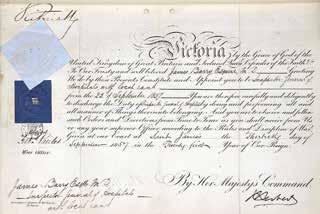 Victoria by the Grace of God of the
United Kingdom of Great Britain and Ireland, Queen, Defender of the Faith &c.
To Our Trusty and well beloved James Barry Esquire M.D. Greeting
We do by these Presents Constitute and Appoint you to be Inspector General of
Hospitals with local rank
from the 22nd September 1857. You are therefore carefully and diligently
to discharge the Duty of Inspector General of Hospitals by doing and performing all and
all manner of Things thereunto belonging. And you are to observe and follow
such Orders and Directions from Time to Time as you shall receive from Us
or any your superior Officer according to the Rules and Discipline of War.
Given at Our Court at Saint James's the Thirtieth day of
September 1857 in the Twenty first Year of Our Reign.
By Her Majesty's Command
War Office
James Barry Esqre M.D.
Inspector General of Hospitals
with local rank